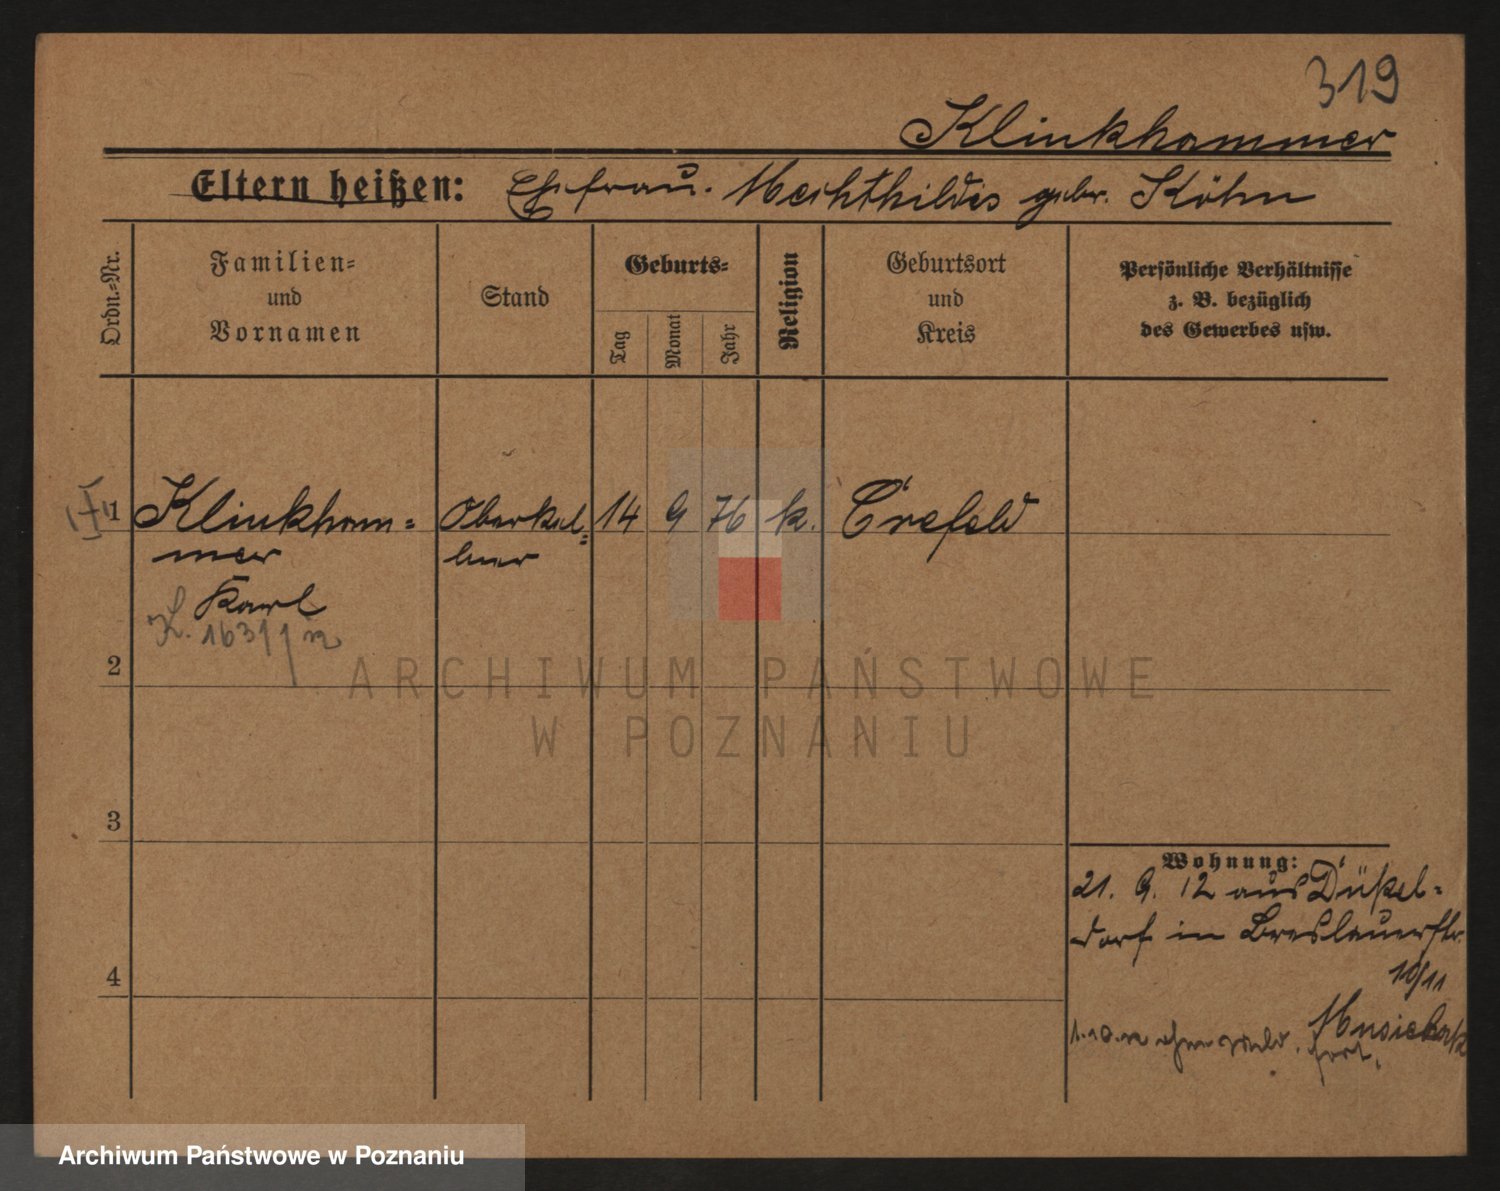 319
Klinkhammer
Eltern heißen: Ehefrau. Mechthildis gebr. Köhn
Ordn.=Nr.
Familien=
und
Vornamen
Stand
Geburts=
Tag
Monat
Jahr
Religion
Geburtsort
und
Kreis
Persönliche Verhältnisse
z. B. bezüglich
des Gewerbes usw.
1 Klinkham= Oberkel= 14 9 76 k. Crefeld
mer lner
Karl
K.
2
3
4
ARCHIWUM PAŃSTWOWE
W POZNANIU
Wohnung:
21. 9. 12 aus Düssel=
dorf in Breslauerstr.
10/11
1.10.12 ohne Meld. fort.
Archiwum Państwowe w Poznaniu